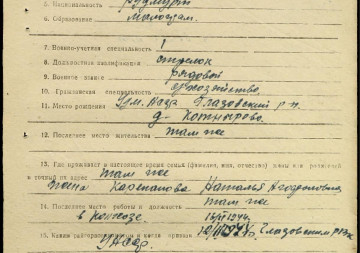 5. Национальность удмурт
6. Образование малограм.
7. Военно-учетная специальность 1
8. Должностная квалификация стрелок
9. Военное звание рядовой
10. Гражданская специальность
11. Место рождения Удм. АССР Глазовский р-н
д.
12. Последнее место жительства там же
13. Где проживает в настоящее время семья (фамилия, имя, отчество) жены или родителей
и точный их адрес там же
жена Наталья
14. Последнее место работы и должность там же
в колхозе
15. Каким райвоенкоматом и когда призван Глазовским РВК
УАССР